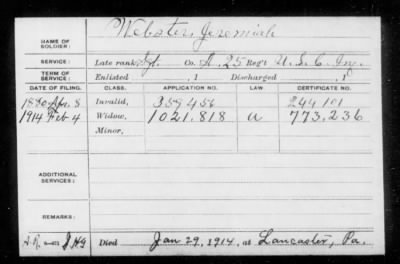 NAME OF SOLDIER: Webster, Jeremiah
SERVICE: Late rank, Co. A. 25 Reg't U. S. C. Inf.
TERM OF SERVICE: Enlisted , 1 Discharged , 1
DATE OF FILING. CLASS. APPLICATION NO. LAW. CERTIFICATE NO.
1880 Apr. 8 Invalid, 357456 244101
1914 Feb 4 Widow, 1021.818 a 773.236
Minor,
ADDITIONAL SERVICES:
REMARKS:
Died Jan 29, 1914, at Lancaster, Pa.